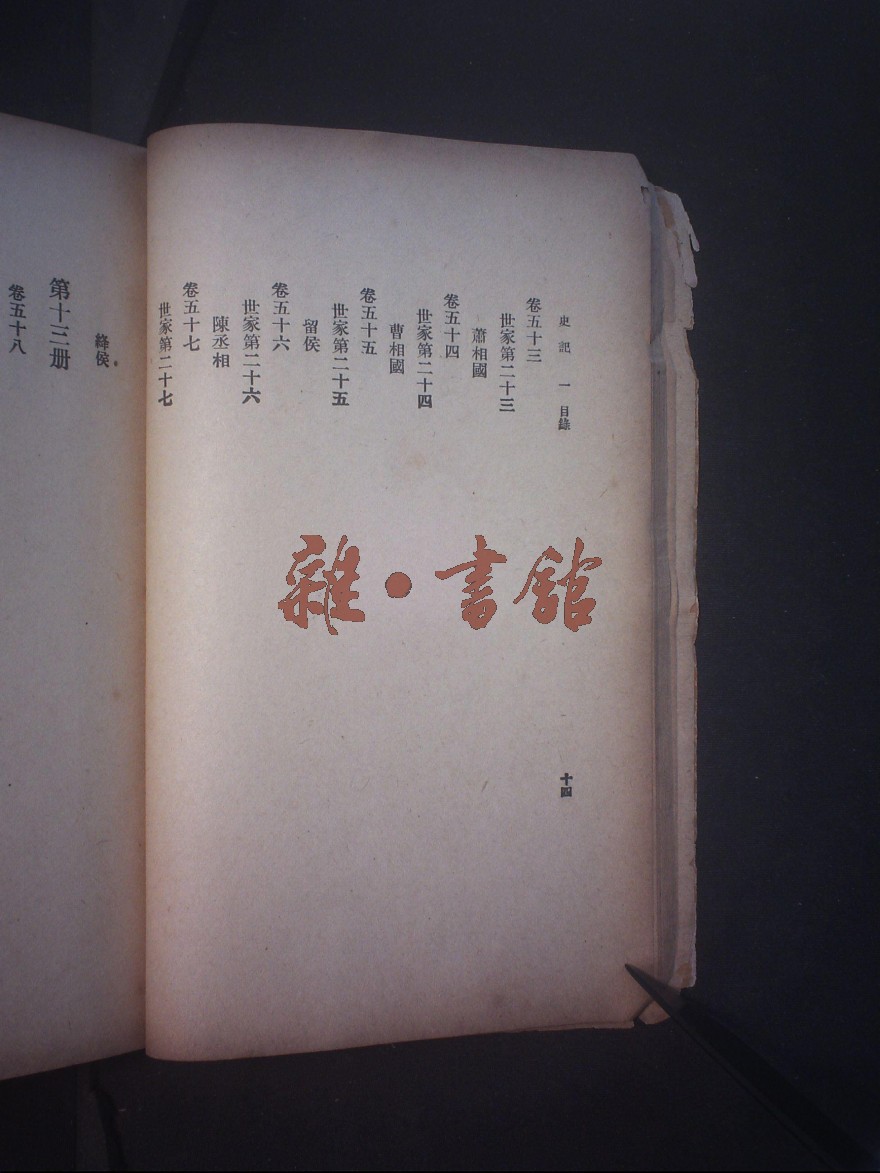 史記 一 目錄
卷五十三
世家第二十三
蕭相國
卷五十四
世家第二十四
曹相國
卷五十五
世家第二十五
留侯
卷五十六
世家第二十六
陳丞相
卷五十七
世家第二十七
十四
絳侯
第十三册
卷五十八
雜·書館